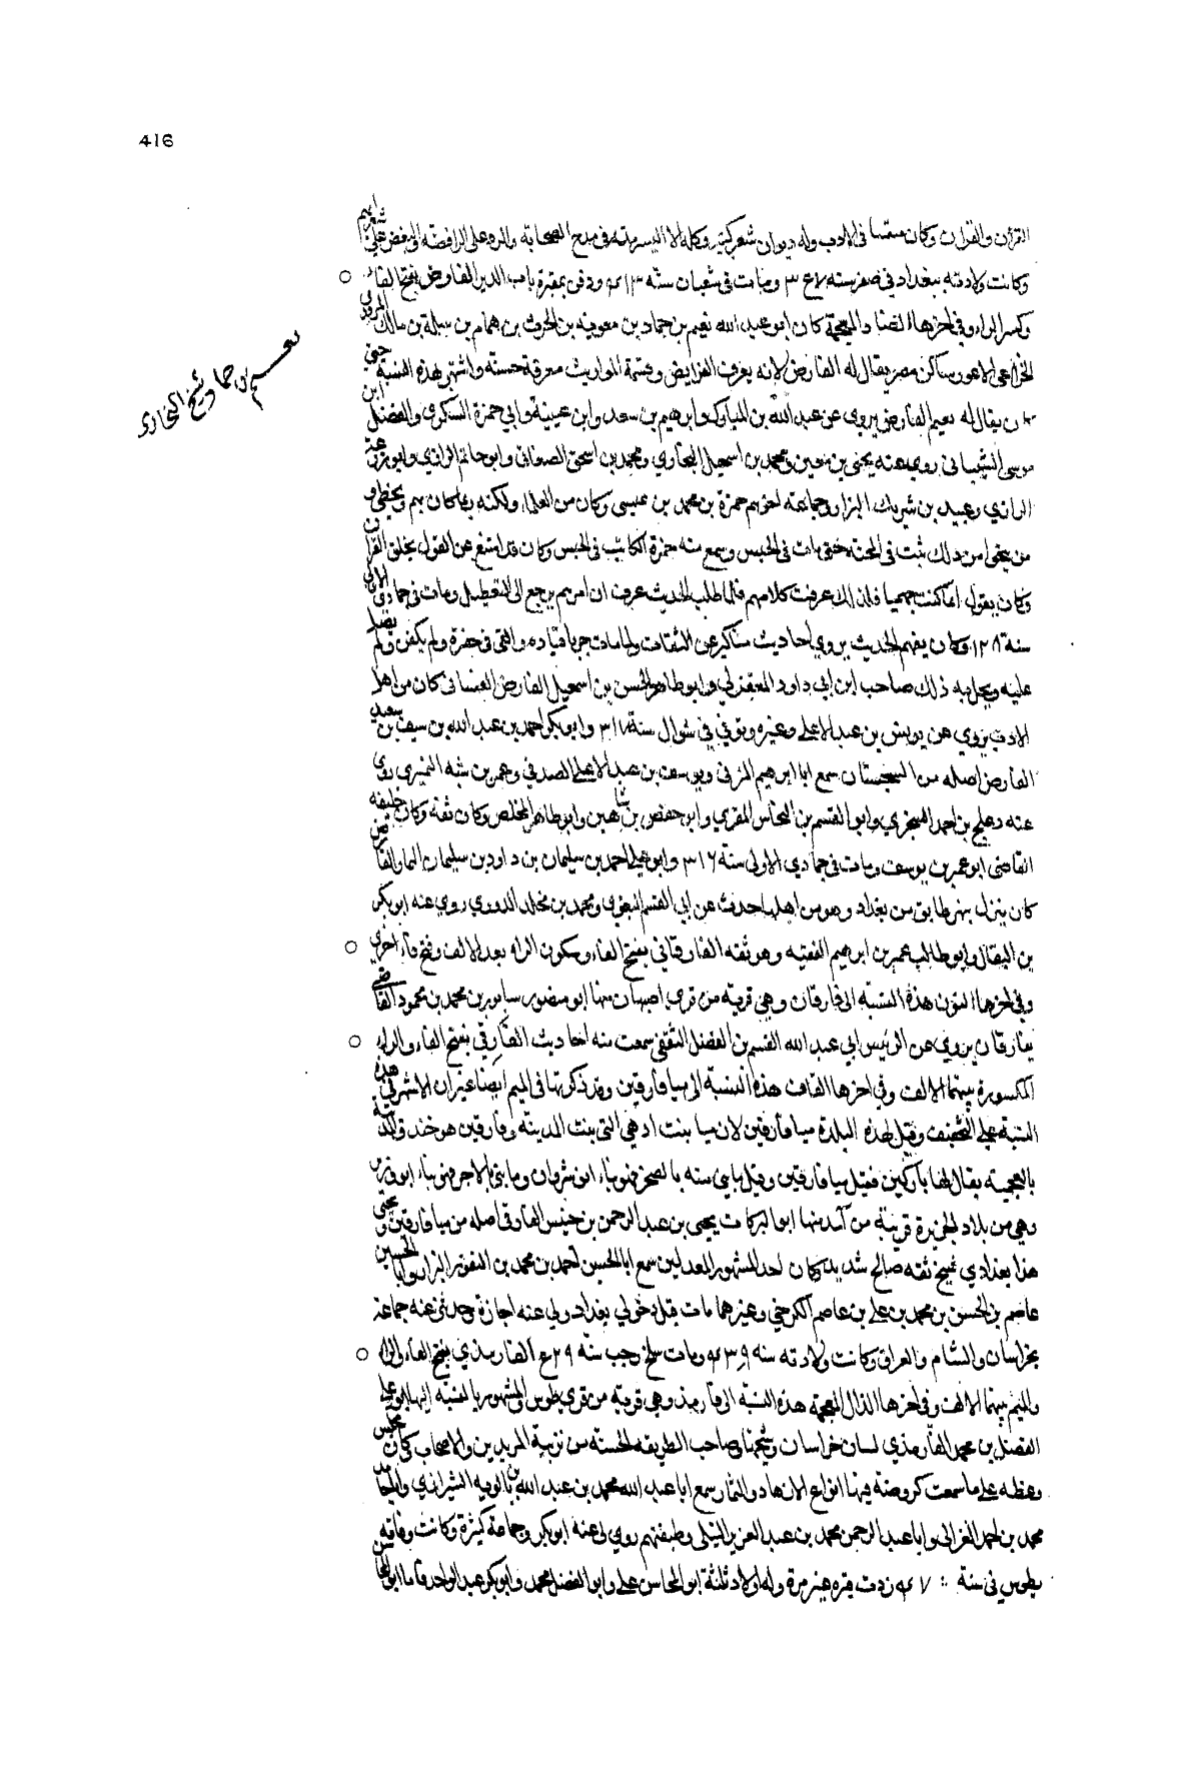 416
نعيم بن حماد شيخ البخاري
القران والقران وكان متقنا في الادب وله ديوان شعر كبير وكله الا اليسير منه في مدح الصحابه والرد على الرافضه
وكانت ولادته ببغداد في صفر سنه ومات في شعبان سنه ودفن بمقبرة باب الدير الفارض بفتح الفاء
وكسر الراء وفي اخرها الضاد المعجمة كان ابو عبد الله نعيم بن حماد بن معوية بن الحرث بن همام بن سلمة بن مالك المروزي
الخزاعي الاعور ساكن مصر يقال له الفارض لانه يعرف الفرايض وقسمة المواريث معرفة حسنة واشتهر بهذه النسبة حتى
كان يقال له نعيم الفارض يروي عن عبد الله بن المبارك وابرهيم بن سعد وابن عيينة وابي حمزة السكري والفضل ابن
موسى الشيباني روى عنه يحيى بن معين ومحمد بن اسمعيل البخاري ومحمد بن اسحق الصغاني وابو حاتم الرازي وابو زرعة
الرازي وعبيد بن شريك البزار وجماعة اخرهم حمزة بن محمد بن عيسى وكان من العلماء ولكنه ربما كان يهم ويخطي و
من ينجوا من ذلك ثبت في المحنة حتى مات في الحبس وسمع منه حمزة الكاتب في الحبس وكان قد امتنع عن القول بخلق القران
وكان يقول انا كنت جهميا فلذلك عرفت كلامهم فلما طلبت الحديث عرفت ان امرهم يرجع الى التعطيل ومات في جمادي الاولى
سنة ٢٢٨ وكان يفهم الحديث يروي احاديث مناكير عن الثقات ولما مات جر باقياده والقي في حفرة ولم يكفن ولم يصل
عليه وفعل به ذلك صاحب ابن ابي داود المعتزلي وابو طاهر الحسن بن اسمعيل الفارض الغساني كان من اهل
الادب يروي عن يونس بن عبد الاعلى وغيره وتوفي في شوال سنة ٣١٨ وابو بكر احمد بن عبد الله بن سيف بن سعيد
الفارض اصله من السجستان سمع ابا ابرهيم المزني ويونس بن عبد الاعلى الصدفي وعمر بن شبه النميري روى
عنه دعلج بن احمد السجزي وابو القسم بن النخاس المقري وابو حفص بن شاهين وابو طاهر المخلص وكان ثقة وكان خليفه
القاضي ابو عمر بن يوسف ومات في جمادي الاولى سنة ٣١٦ وابو علي احمد بن سليمان بن داود بن سليمان
كان ينزل بنهر طابق من بغداد وهو من اهلها حدث عن ابي القسم البغوي ومحمد بن مخلد الدوري روى عنه ابو بكر
بن البقال وابو طالب عمر بن ابرهيم الفقيه وهو ثقه الفارقاني بفتح الفاء وسكون الراء بعد الالف وفتح قاء اخرى
وفي اخرها النون هذه النسبة الى فارقان وهي قرية من قرى اصبهان منها ابو منصور سابور بن محمد بن محمود القاضي
بفارقان يروي عن الرئيس ابي عبد الله القسم بن الفضل الثقفي سمعت منه احاديث الفارقي بفتح الفاء والراء
المكسورة بينهما الالف وفي اخرها القاف هذه النسبة الى ميافارقين وقد ذكرتها في الميم ايضا غير ان الاشهر في هذه
النسبة على التخفيف وقيل لهذه البلدة ميافارقين لان ميا بنت اد هي التي بنت المدينة وفارقين هو خندق المدينة
بالعجمية يقال لها باركين فقيل ميافارقين وقيل ما بني منه بالصخر فهو بناء انوشروان وما بني بالاجر فهو بناء ابرويز
وهي من بلاد الجزيرة قريبة من آمد منها ابو البركات يحيى بن عبد الرحمن بن حبيش الفارقي اصله من ميافارقين ويحيى
هذا بغدادي شيخ ثقة صالح شديد كان احد الشهور المعدلين سمع ابا الحسين احمد بن محمد بن النقور البزار وابا الحسين
عاصم بن الحسن بن محمد بن علي بن عاصم الكرخي وغيرهما مات قبل دخولي بغداد ولي عنه اجازة وحدثني عنه جماعة
بخراسان والشام والعراق وكانت ولادته سنه ومات سلخ رجب سنه الفارمذي بفتح الفاء والراء
والميم بينهما الالف وفي اخرها الذال المعجمة هذه النسبة الى فارمذ وهي قرية من قرى طوس والمشهور بالنسبة اليها ابو علي
الفضل بن محمد الفارمذي لسان خراسان وشيخها وصاحب الطريقه الحسنه من تربية المريدين والاصحاب كان مجلس
وعظه على ما سمعت كروضة فيها انواع الازهار والثمار سمع ابا عبد الله محمد بن عبد الله بن باكويه الشيرازي وابا حامد
محمد بن احمد الغزالي وابا عبد الرحمن محمد بن عبد العزيز النيلي وطبقتهم روى لي عنه ابو بكر وجماعة كثيرة وكانت وفاته
بطوس في سنة زرت قبره غير مرة وله اولاد ثلثة ابو المحاسن علي وابو الفضل محمد وابو بكر عبد الواحد فاما ابو المحاسن